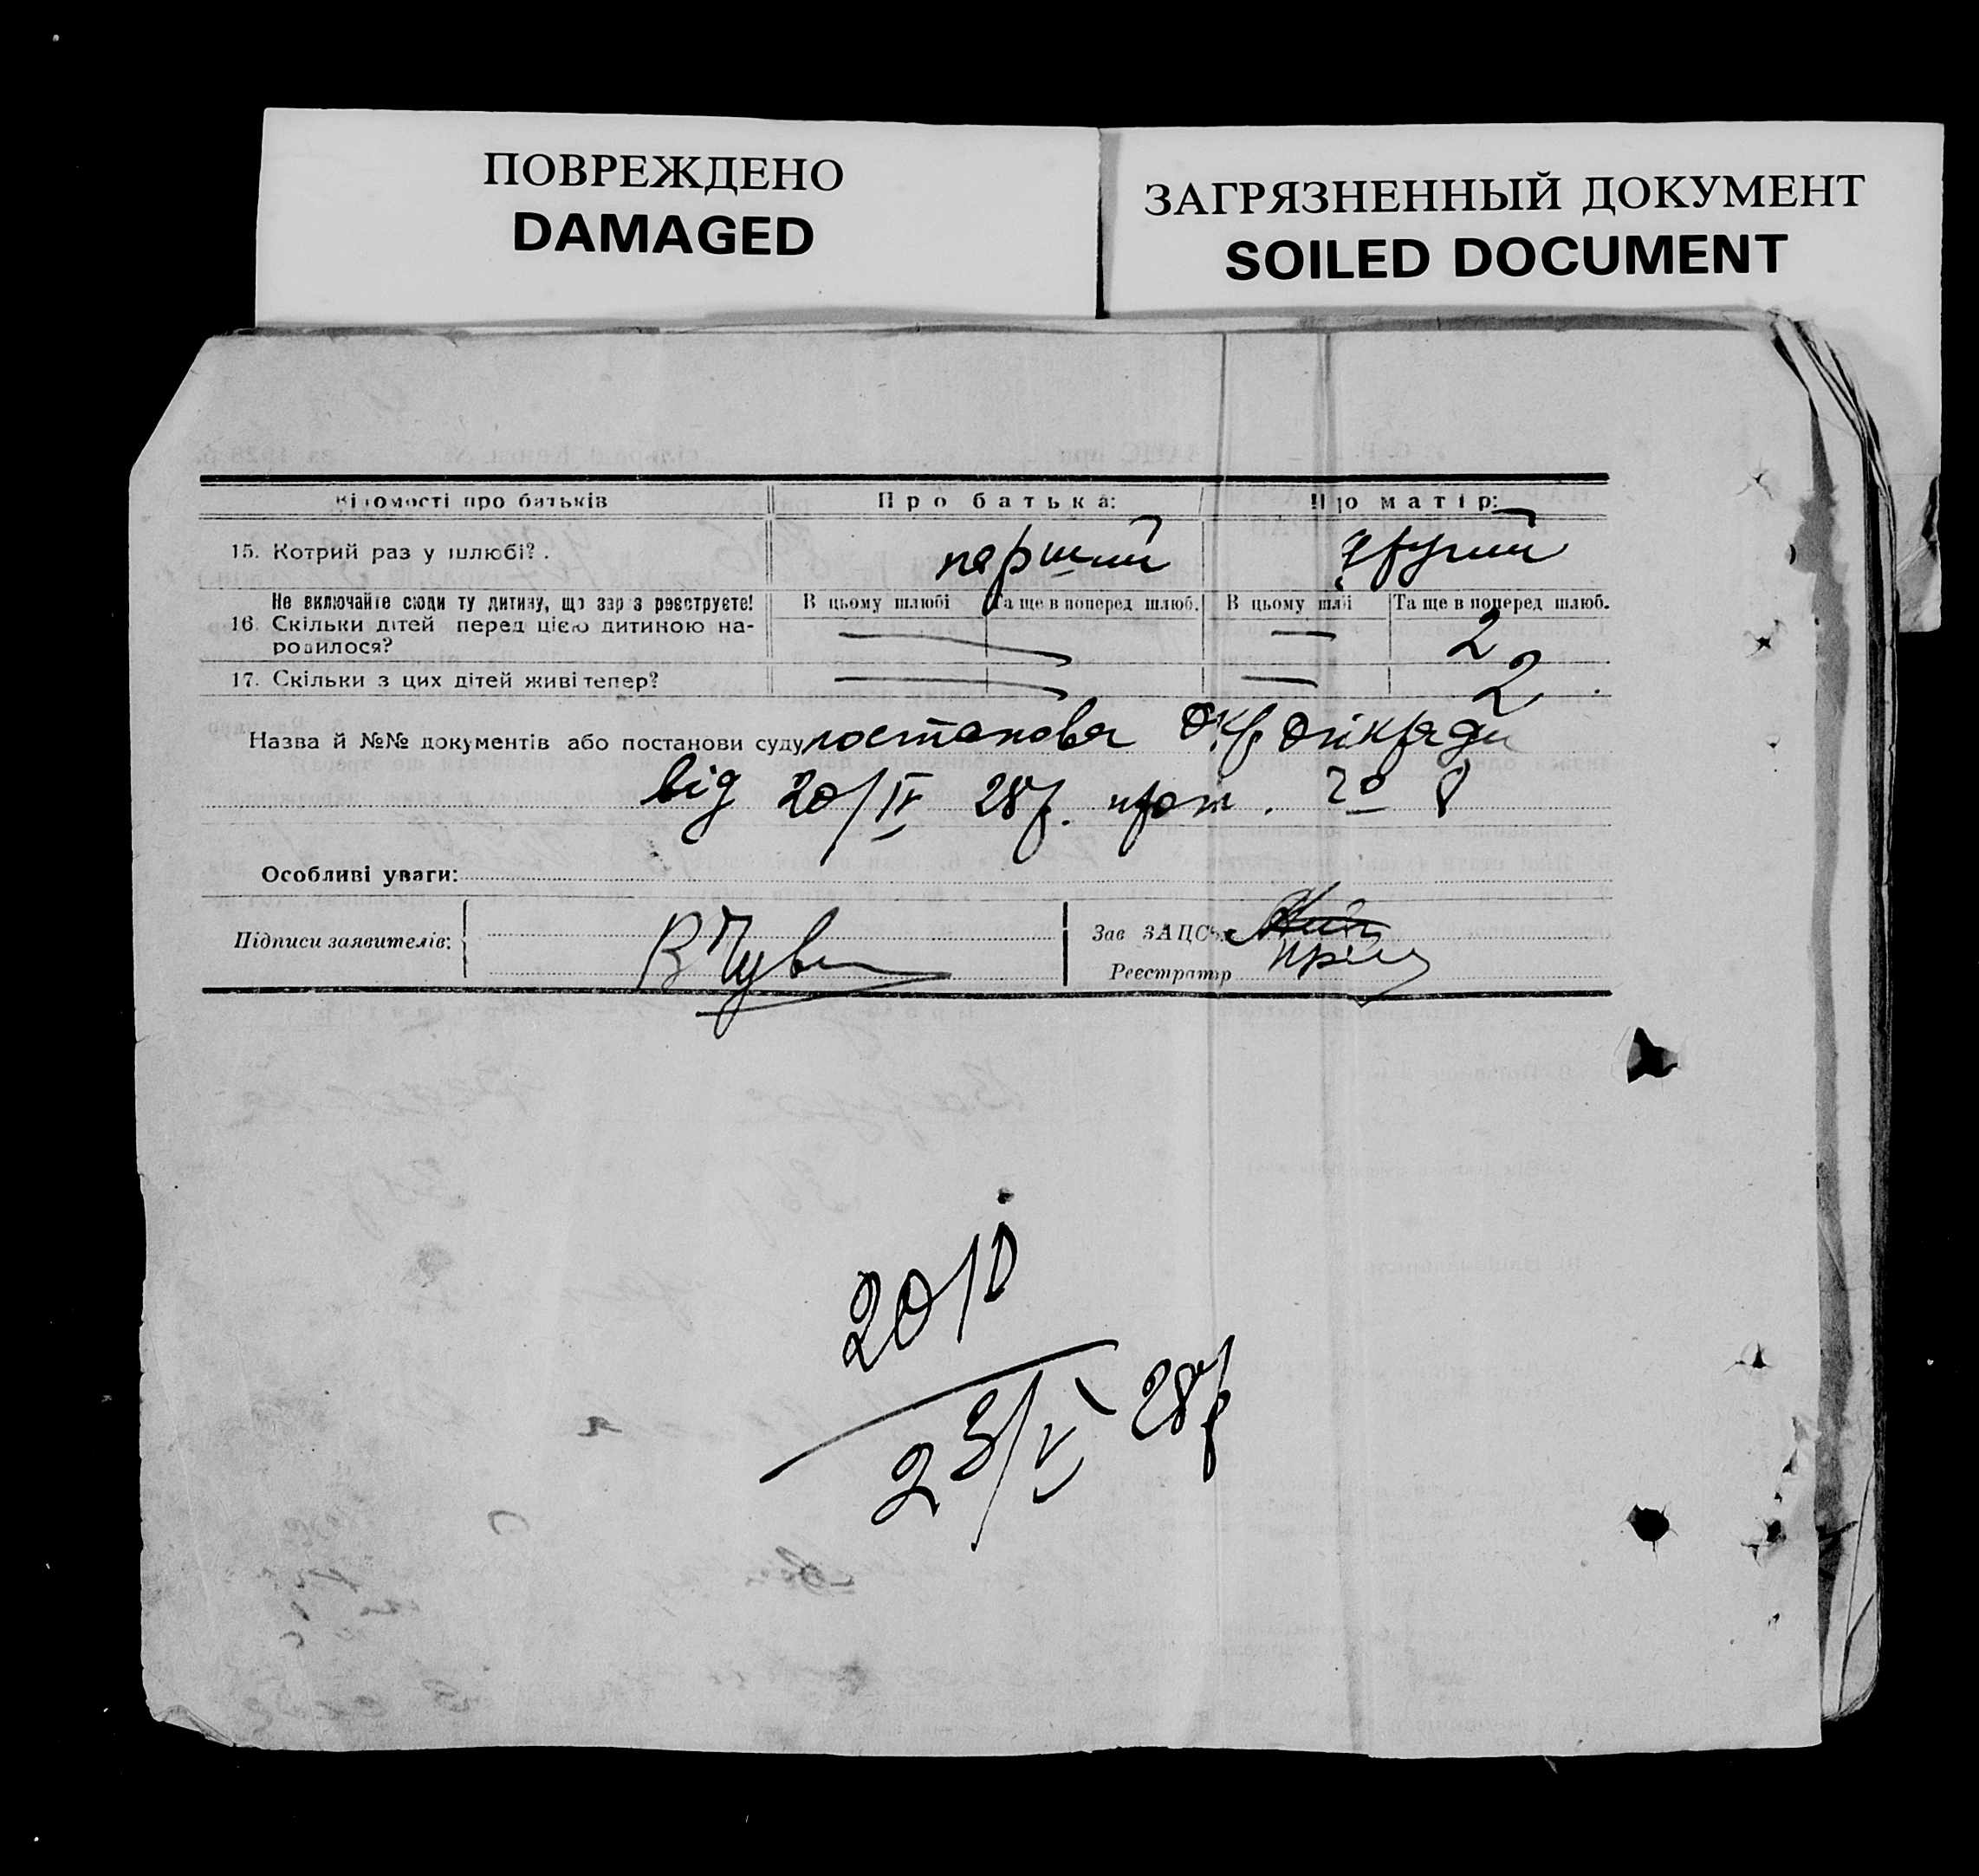 ПОВРЕЖДЕНО
DAMAGED
ЗАГРЯЗНЕННЫЙ ДОКУМЕНТ
SOILED DOCUMENT
Відомості про батьків Про батька: Про матір:
15. Котрий раз у шлюбі? . перший другий
Не включайте сюди ту дитину, що зараз реєструєте! В цьому шлюбі Та ще в поперед шлюб. В цьому шлюбі Та ще в поперед шлюб.
16. Скільки дітей перед цією дитиною на-
родилося? — — 2
17. Скільки з цих дітей живі тепер? — — 2
Назва й №№ документів або постанови суду постанова Окр.
від 20/IV 28р. прот. 8
Особливі уваги:
Підписи заявителів: Зав ЗАПС'ом
Реєстратор
20/V
23/V 28р